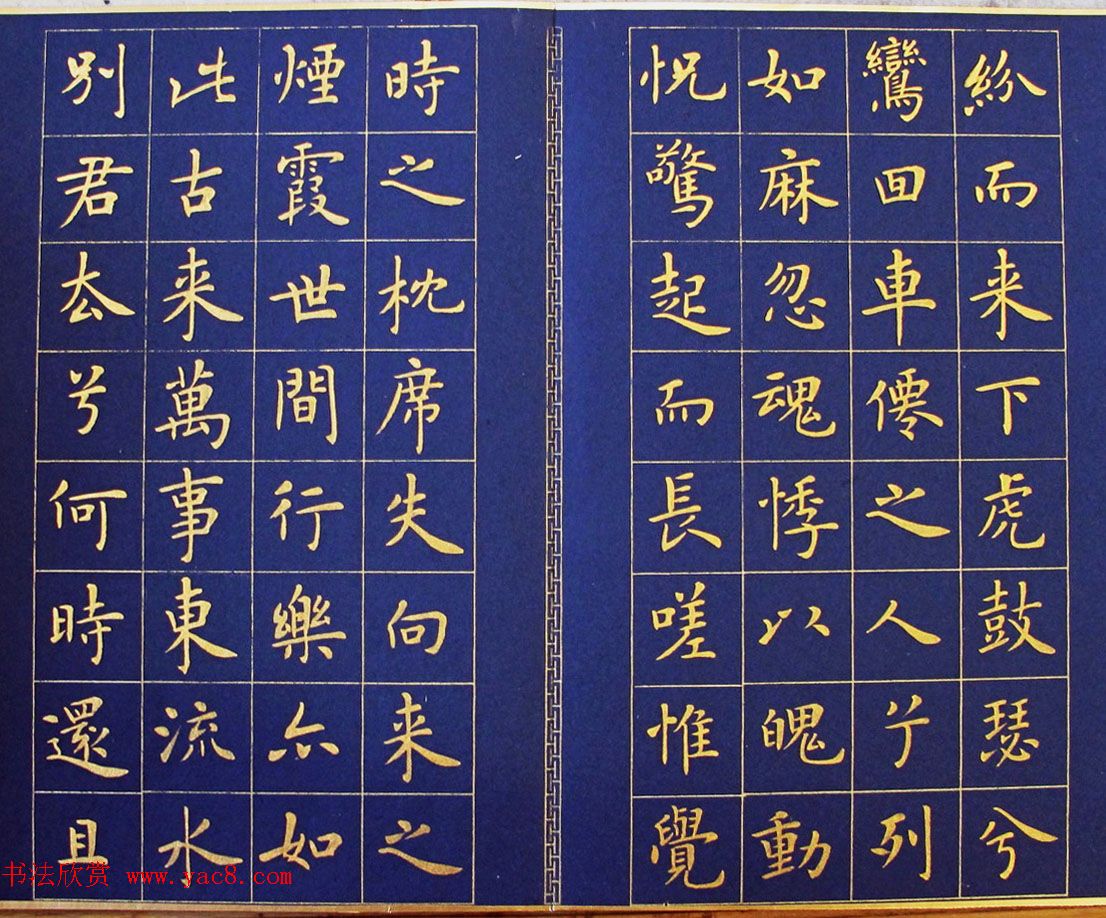 紛而来下虎鼓瑟兮
鸞囬車僊之人兮列
如麻忽魂悸以魄動
怳驚起而長嗟惟覺
時之枕席失向来之
煙霞世間行樂亦如
此古来萬事東流水
別君去兮何時還且
书法欣赏 www.yac8.com